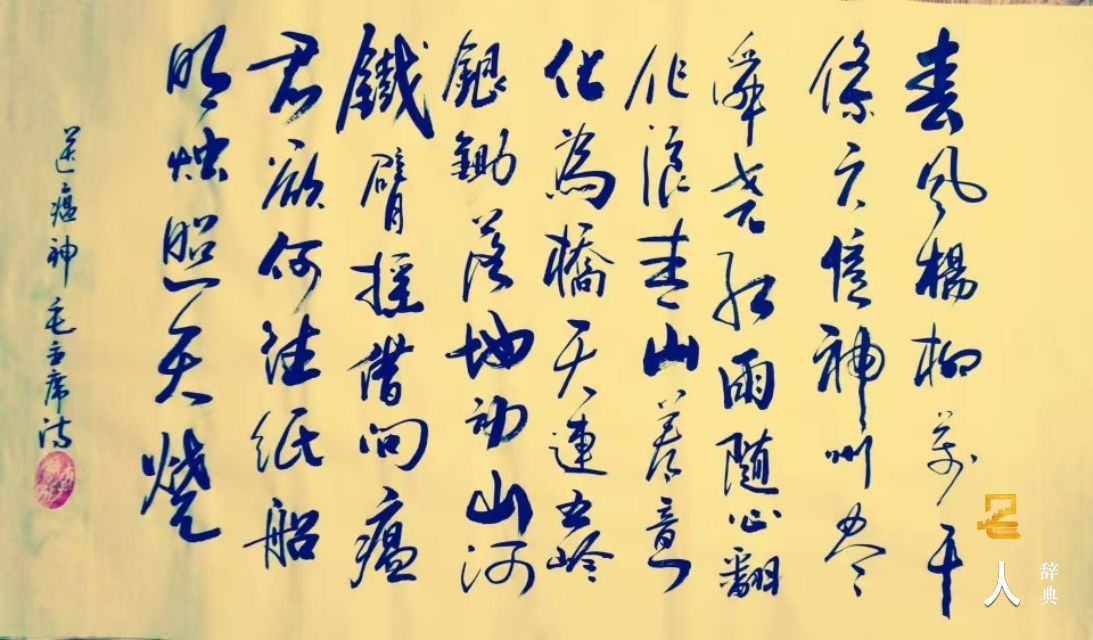 春风楊柳万千
條六億神州尽
舜尧红雨随心翻
作浪青山着意
化為橋天連五岭
銀鋤落地动山河
鐵臂摇借问瘟
君欲何往纸船
明烛照天烧
送瘟神 毛主席诗
名人
辞典